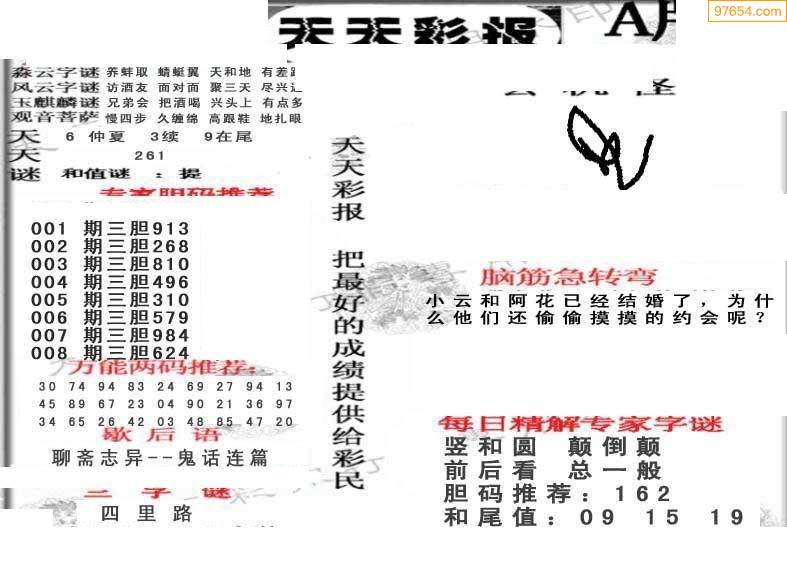 天天彩报
97654.com
淼云字谜 养蚌取 蜻蜓翼 天和地 有差
风云字谜 访酒友 面对面 聚三天 尽兴
玉麒麟谜 兄弟会 把酒喝 兴头上 有点多
观音菩萨 慢四步 久缠绵 高跟鞋 地扎眼
天 6 仲夏 3续 9在尾
天 261
谜 和值谜 : 提
专家胆码推荐
001 期三胆913
002 期三胆268
003 期三胆810
004 期三胆496
005 期三胆310
006 期三胆579
007 期三胆984
008 期三胆624
万能两码推荐:
30 74 94 83 24 69 27 94 13
45 89 67 23 04 90 21 36 97
34 65 26 42 03 48 85 47 20
歇后语
聊斋志异--鬼话连篇
三字谜
四里路
天天彩报 把最好的成绩提供给彩民
脑筋急转弯
小云和阿花已经结婚了，为什
么他们还偷偷摸摸的约会呢？
每日精解专家字谜
竖和圆 颠倒颠
前后看 总一般
胆码推荐：162
和尾值：09 15 19